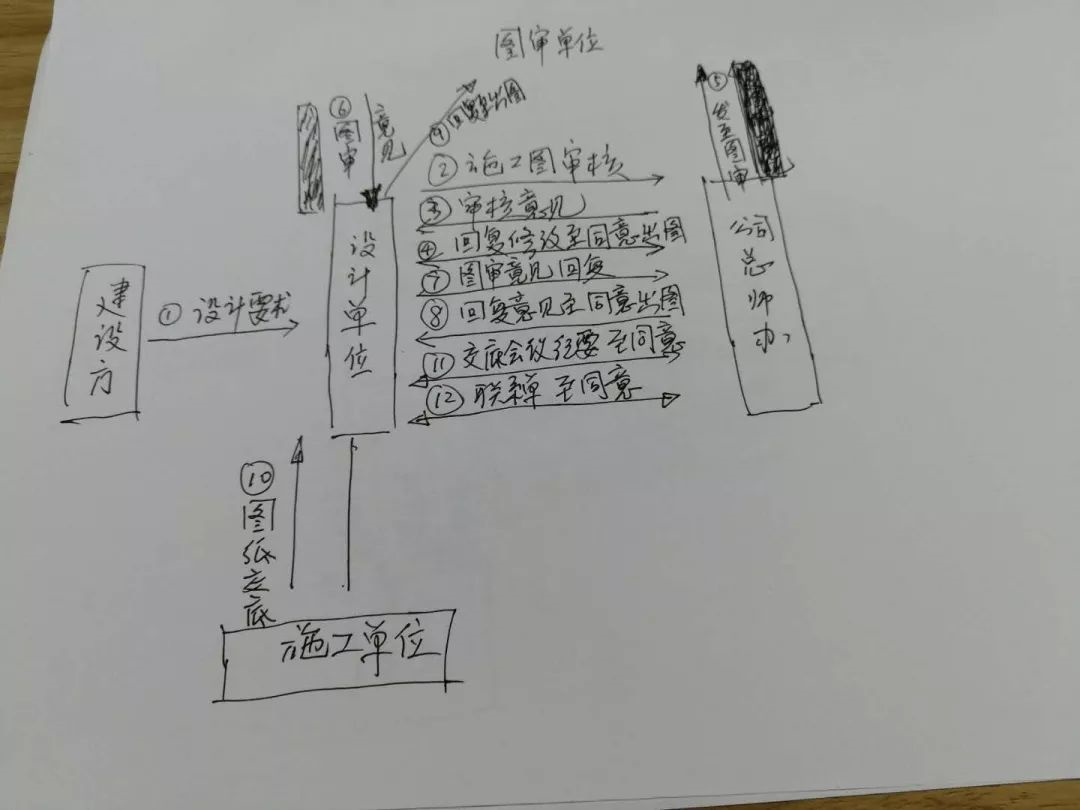 图审单位
⑥图审
意见
⑨回复至出图
⑤发至图审
②施工图审核
③审核意见
④回复修改至同意出图
⑦图审意见回复
⑧回复意见至同意出图
⑪交底会议纪要至同意
⑫联系单至同意
建设方
①设计要求
设计单位
公司总师办
⑩图纸交底
施工单位